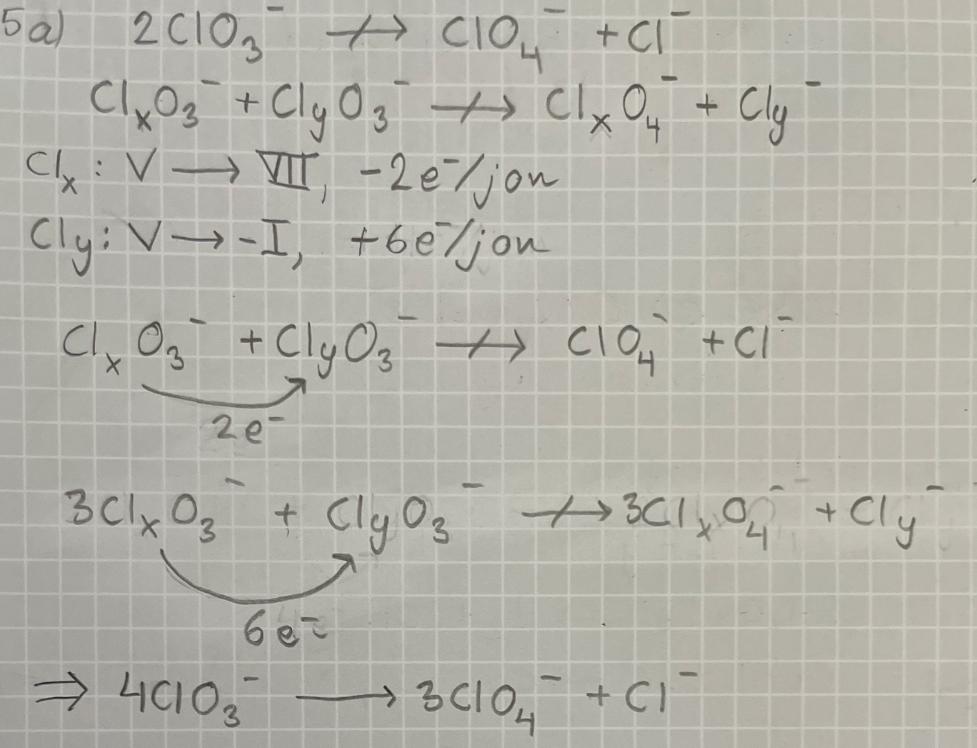 5a) 2ClO₃⁻ ↛ ClO₄⁻ + Cl⁻
ClₓO₃⁻ + ClyO₃⁻ ↛ ClₓO₄⁻ + Cly⁻
Clₓ: V → VII, -2e⁻/jon
Cly: V → -I, +6e⁻/jon
ClₓO₃⁻ + ClyO₃⁻ ↛ ClO₄⁻ + Cl⁻
2e⁻
3ClₓO₃⁻ + ClyO₃⁻ ↛ 3ClₓO₄⁻ + Cly⁻
6e⁻
⇒ 4ClO₃⁻ → 3ClO₄⁻ + Cl⁻